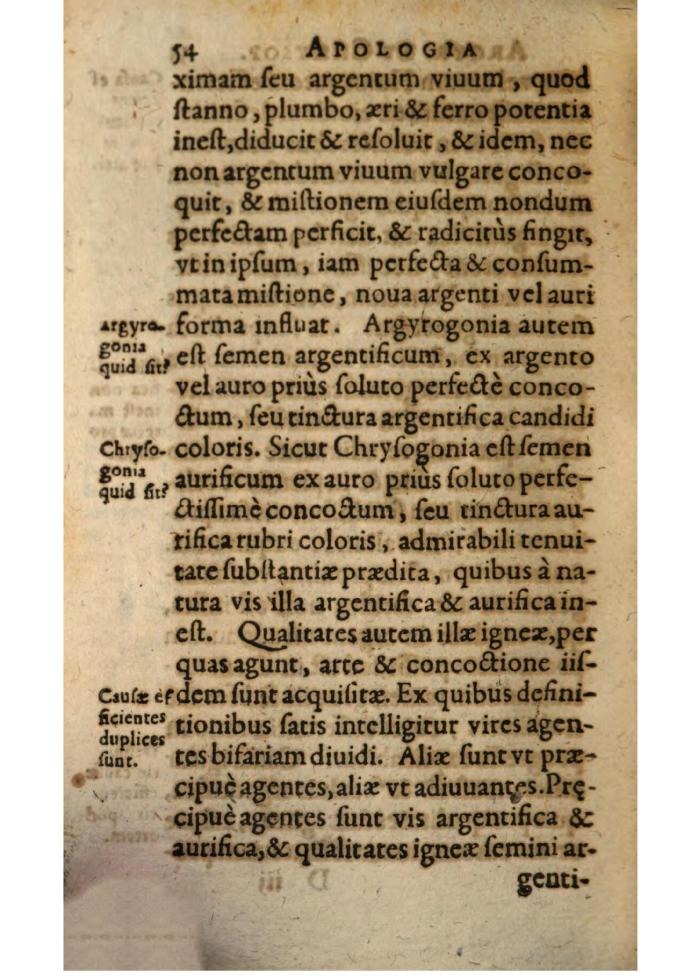 54 APOLOGIA
ximam ſeu argentum viuum, quod
ſtanno, plumbo, æri & ferro potentia
ineſt, diducit & reſoluit, & idem, nec
non argentum viuum vulgare conco-
quit, & miſtionem eiuſdem nondum
perfectam perficit, & radicitùs fingit,
vt in ipſum, iam perfecta & conſum-
mata miſtione, noua argenti vel auri
forma influat. Argyrogonia autem
Argyro-
gonia
quid ſit?
eſt ſemen argentificum, ex argento
vel auro priùs ſoluto perfectè conco-
ctum, ſeu tinctura argentifica candidi
coloris. Sicut Chryſogonia eſt ſemen
Chryſo-
gonia
quid ſit?
aurificum ex auro priùs ſoluto perfe-
ctiſſimè concoctum, ſeu tinctura au-
rifica rubri coloris, admirabili tenui-
tate ſubſtantiæ prædita, quibus à na-
tura vis illa argentifica & aurifica in-
eſt. Qualitates autem illæ igneæ, per
quas agunt, arte & concoctione iiſ-
dem ſunt acquiſitæ. Ex quibus defini-
Cauſæ ef
ficientes
duplices
ſunt.
tionibus ſatis intelligitur vires agen-
tes bifariam diuidi. Aliæ ſunt vt præ-
cipuè agentes, aliæ vt adiuuantes. Prę-
cipuè agentes ſunt vis argentifica &
aurifica, & qualitates igneæ ſemini ar-
genti-